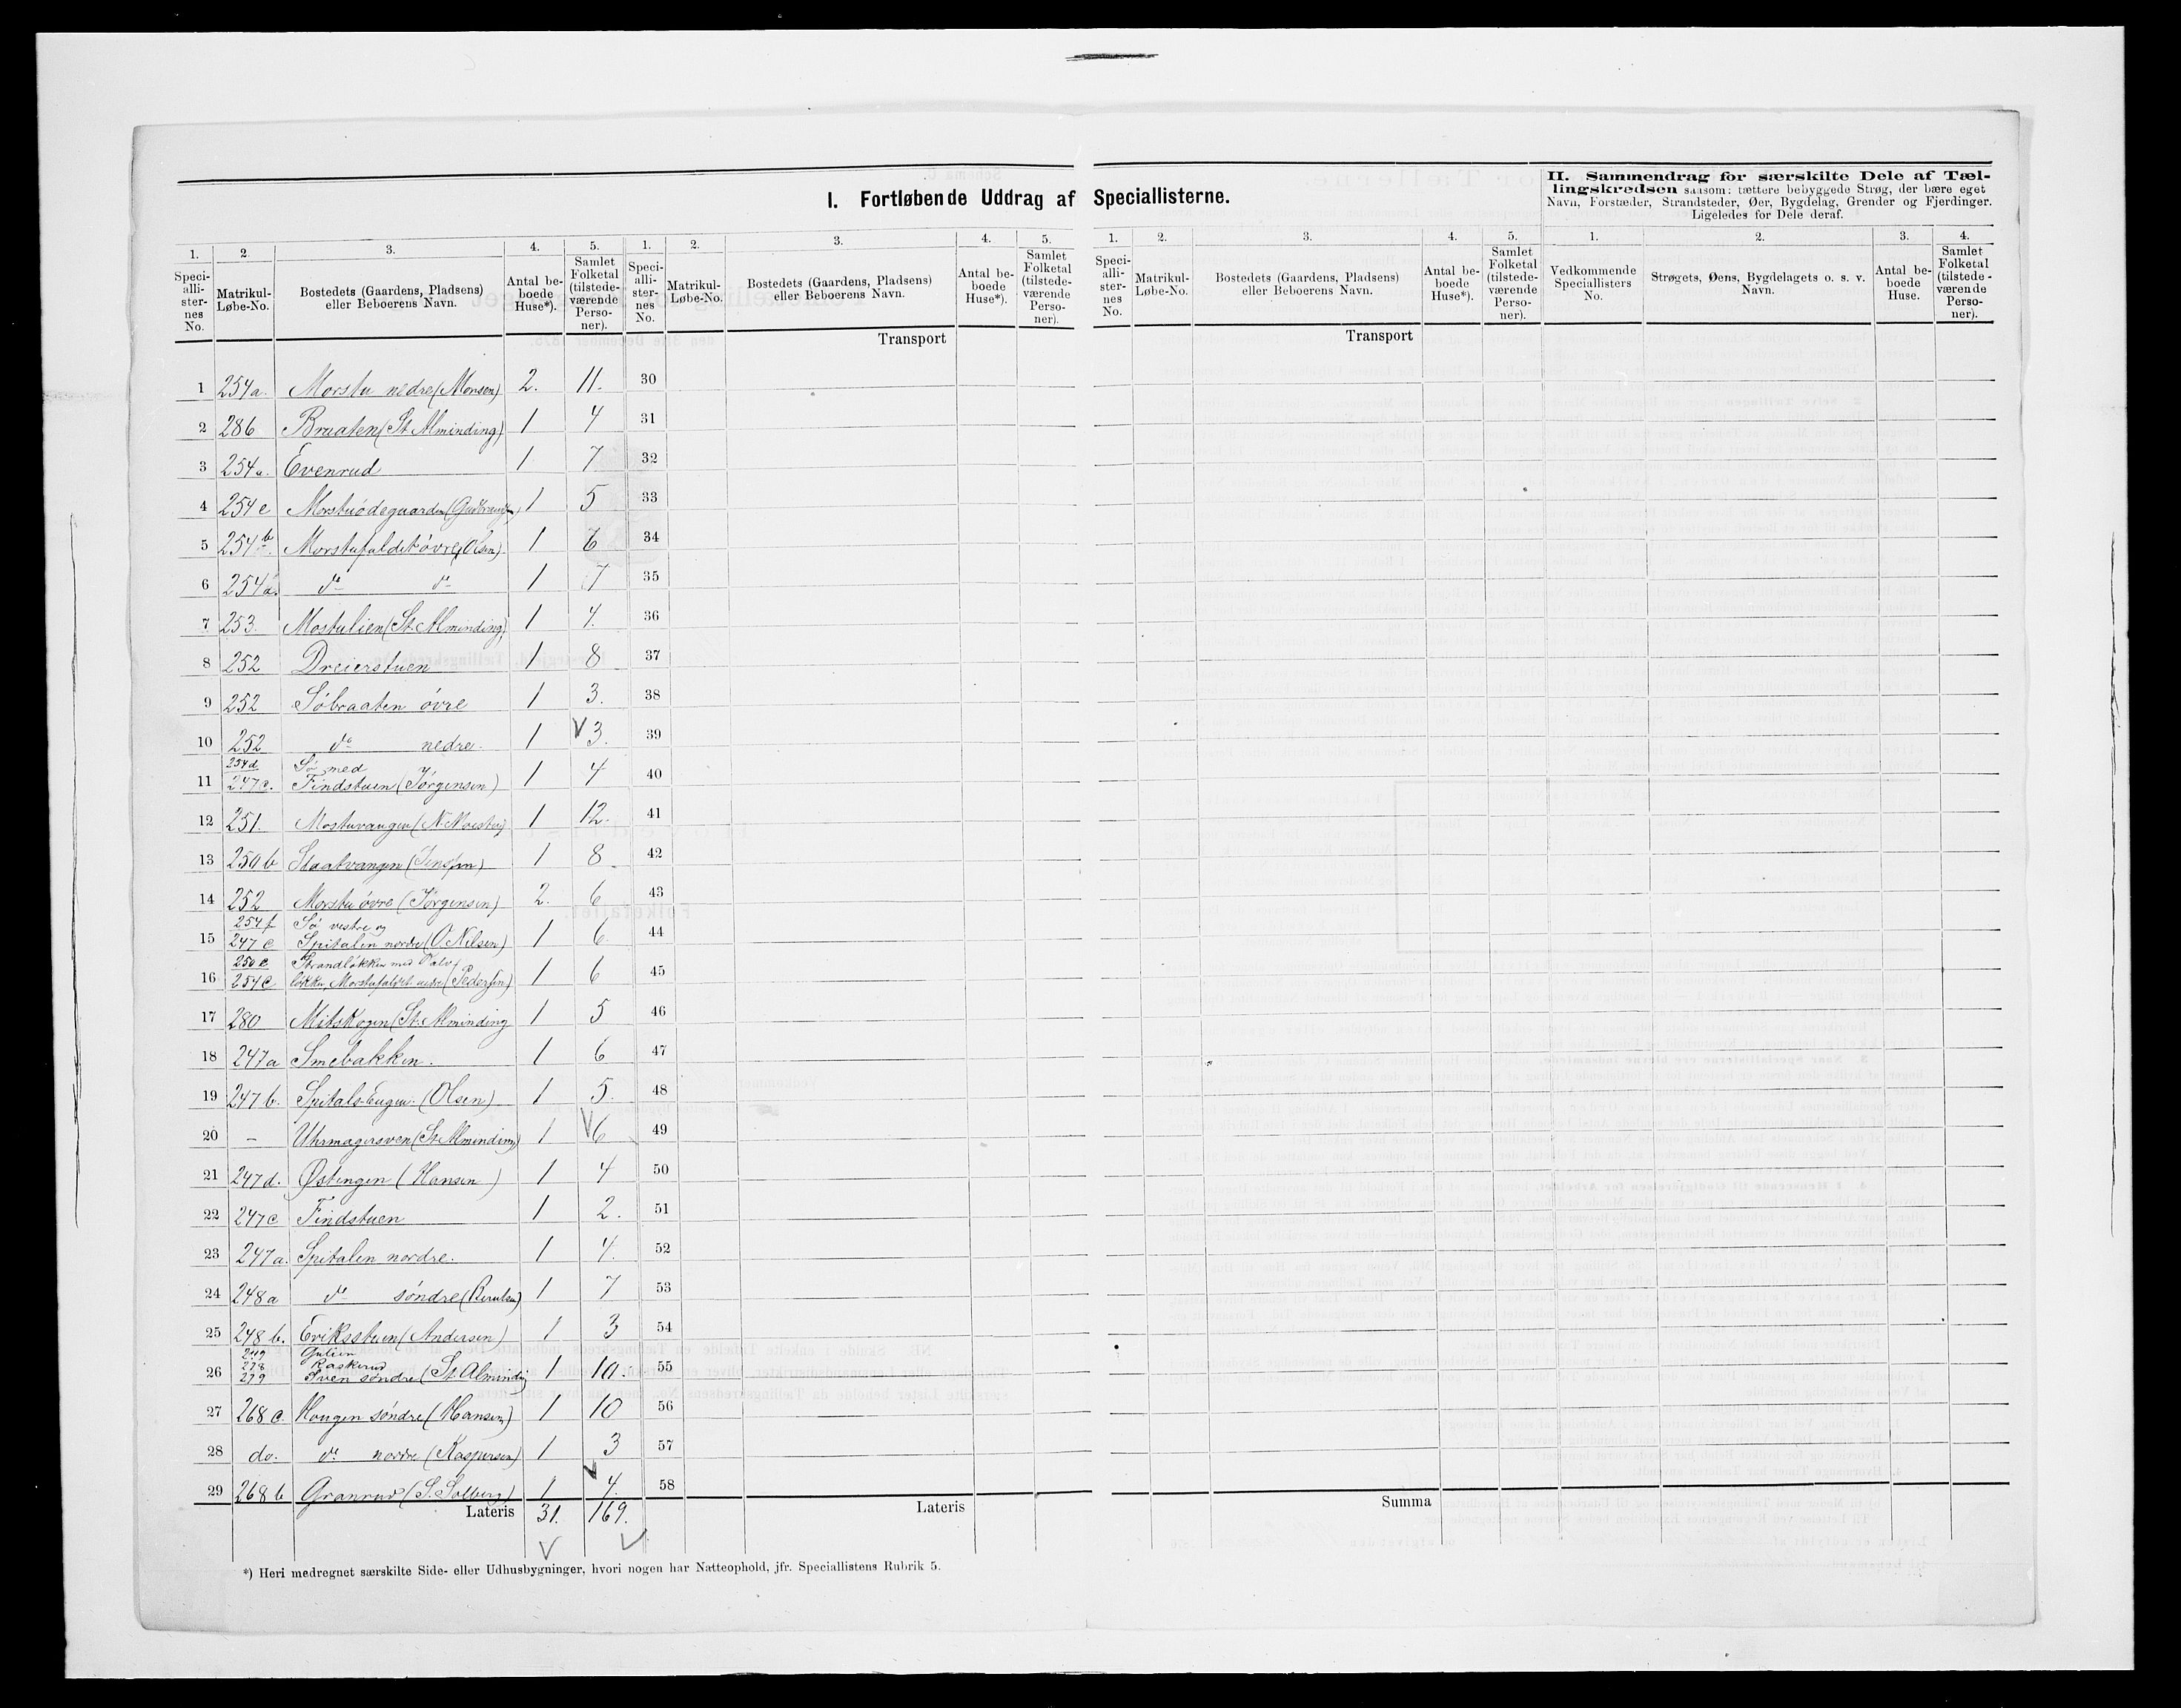 I. Fortløbende Uddrag af Speciallisterne.
II. Sammendrag for særskilte Dele af Tæl-
lingskredsen saasom: tættere bebyggede Strøg, der bære eget
Navn, Forstæder, Strandsteder, Øer, Bygdelag, Grender og Fjerdinger.
Ligeledes for Dele deraf.
1. 2. 3. 4. 5. 1. 2. 3. 4. 5. 1. 2. 3. 4. 5. 1. 2. 3. 4.
Speci-
alli-
ster-
nes
No.
Matrikul-
Løbe-No.
Bostedets (Gaardens, Pladsens)
eller Beboerens Navn.
Antal be-
boede
Huse*).
Samlet
Folketal
(tilstede-
værende
Perso-
ner).
Speci-
alli-
ster-
nes
No.
Matrikul-
Løbe-No.
Bostedets (Gaardens, Pladsens)
eller Beboerens Navn.
Antal be-
boede
Huse*).
Samlet
Folketal
(tilstede-
værende
Perso-
ner).
Speci-
alli-
ster-
nes
No.
Matrikul-
Løbe-No.
Bostedets (Gaardens, Pladsens)
eller Beboerens Navn.
Antal be-
boede
Huse*).
Samlet
Folketal
(tilstede-
værende
Perso-
ner).
Vedkommende
Speciallisters
No.
Strøgets, Øens, Bygdelagets o. s. v.
Navn.
Antal be-
boede
Huse.
Samlet
Folketal
(tilstede-
værende
Perso-
ner).
Transport Transport
1 254a. Morstu nedre (Monsen) 2. 11. 30
2 286 Braaten (St. Alminding) 1 4 31
3 254a. Evenrud 1 7 32
4 254e Morstuødegaarden 1 5 33
5 254b. Morstufaldet øvre (Olsen) 1 6 34
6 254a. do do 1 7 35
7 253. Mostulien (St. Alminding) 1 4. 36
8 252 Dreierstuen 1 8 37
9 252 Söbraaten övre 1 3. 38
10 252 do nedre. 1 3. 39
254d Sö med
11 247c. Findstuen (Jörgensen) 1 4 40
12 251. Mostuvangen 1 12. 41
13 250b Staatvangen 1 8 42
14 252 Morstu övre (Jörgensen) 2. 6 43
254f Sö vestre og
15 247c Spitalen nordre (O. Nilsen) 1 6. 44
250c Strandløkken med Kalv
16 254c løkken, Morstufaldet nedre (Pedersen) 1 6 45
17 280 Mitskogen (St. Alminding 1 5 46
18 247a Smebakken. 1 6 47
19 247b. Spitals-Engen. (Olsen) 1 5. 48
20 - Uhrmagersven (St. Alminding) 1 6 49
21 247d. Østengen (Hansen) 1 4 50
22 247c Findstuen 1 2. 51
23 247a. Spitalen nordre. 1 4. 52
24 248a do söndre 1 7 53
25 248b. Eriksstuen (Andersen) 1 3 54
249 Gulien
278 Raskerud
26 279 Sven söndre (St. Alminding 1 10. 55
27 268c. Hougen söndre (Hansen) 1 10 56
28 do. do nordre (Kaspersen) 1 3 57
29 268b Granrud (S. Solberg) 1 4. 58
Lateris 31. 169. Lateris Summa
*) Heri medregnet særskilte Side- eller Udhusbygninger, hvori nogen har Natteophold, jfr. Speciallistens Rubrik 5.